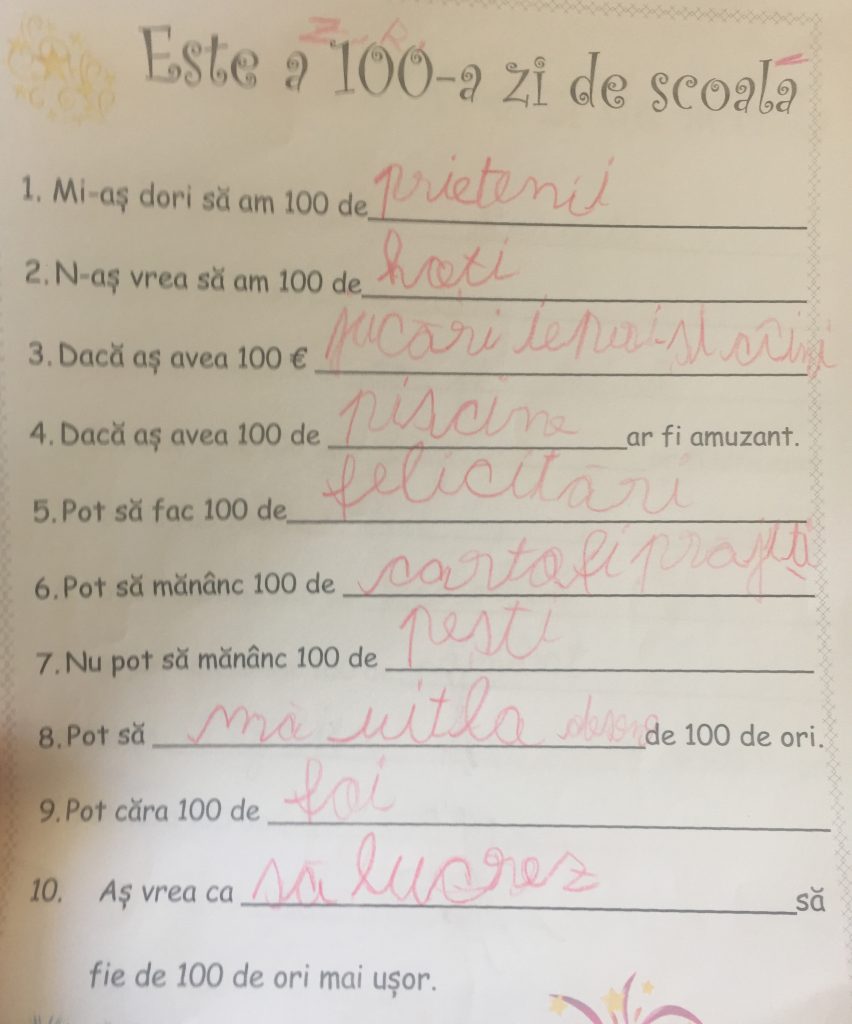 Este a 100-a zi de scoala
1. Mi-aș dori să am 100 de prietenii
2. N-aș vrea să am 100 de hoți
3. Dacă aș avea 100 € jucări iepuri și câini
4. Dacă aș avea 100 de piscine ar fi amuzant.
5. Pot să fac 100 de felicitări
6. Pot să mănânc 100 de cartofi prajiți
7. Nu pot să mănânc 100 de pești
8. Pot să mă uit la desene de 100 de ori.
9. Pot căra 100 de foi
10. Aș vrea ca să lucrez să
fie de 100 de ori mai ușor.